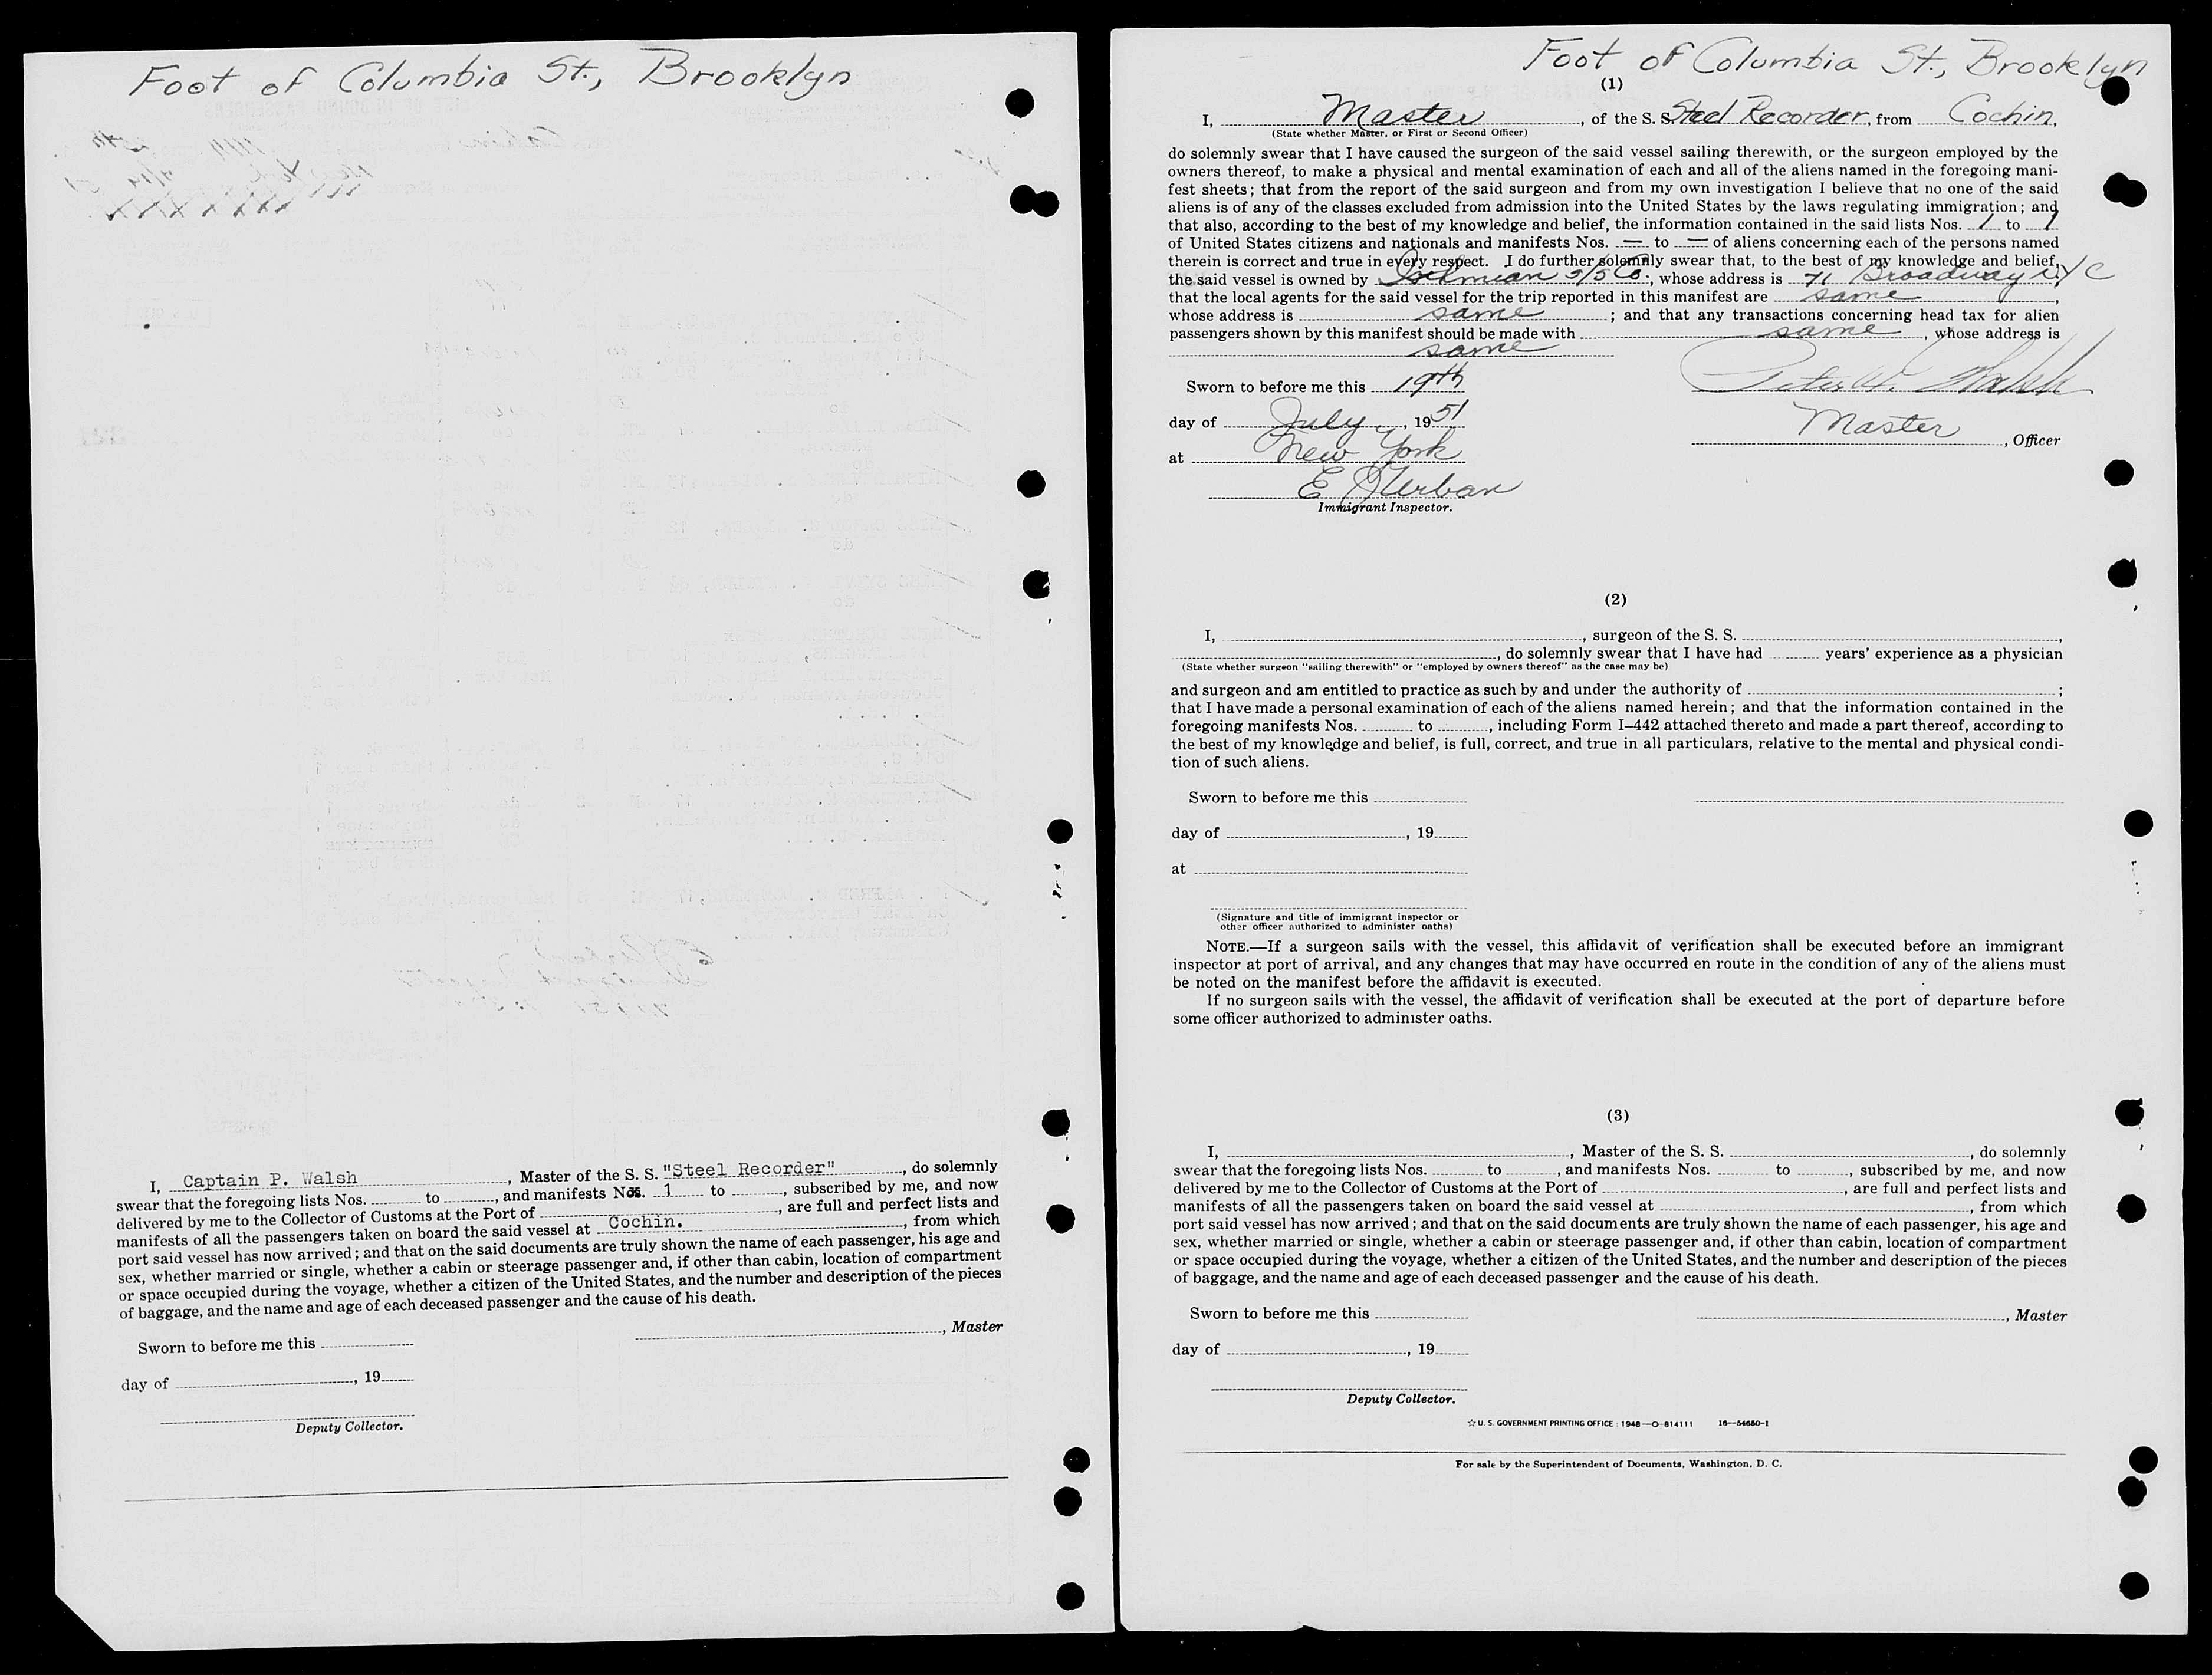 Foot of Columbia St., Brooklyn
I, Captain P. Walsh, Master of the S. S. "Steel Recorder", do solemnly
swear that the foregoing lists Nos. to , and manifests Nos. 1 to , subscribed by me, and now
delivered by me to the Collector of Customs at the Port of , are full and perfect lists and
manifests of all the passengers taken on board the said vessel at Cochin. , from which
port said vessel has now arrived; and that on the said documents are truly shown the name of each passenger, his age and
sex, whether married or single, whether a cabin or steerage passenger and, if other than cabin, location of compartment
or space occupied during the voyage, whether a citizen of the United States, and the number and description of the pieces
of baggage, and the name and age of each deceased passenger and the cause of his death.
Sworn to before me this
, Master
day of , 19
Deputy Collector.
Foot of Columbia St., Brooklyn
(1)
I, Master , of the S. S. Steel Recorder, from Cochin,
(State whether Master, or First or Second Officer)
do solemnly swear that I have caused the surgeon of the said vessel sailing therewith, or the surgeon employed by the
owners thereof, to make a physical and mental examination of each and all of the aliens named in the foregoing mani-
fest sheets; that from the report of the said surgeon and from my own investigation I believe that no one of the said
aliens is of any of the classes excluded from admission into the United States by the laws regulating immigration; and
that also, according to the best of my knowledge and belief, the information contained in the said lists Nos. 1 to 1
of United States citizens and nationals and manifests Nos. — to — of aliens concerning each of the persons named
therein is correct and true in every respect. I do further solemnly swear that, to the best of my knowledge and belief,
the said vessel is owned by Isthmian S/S Co., whose address is 71 Broadway NYC
that the local agents for the said vessel for the trip reported in this manifest are same ,
whose address is same ; and that any transactions concerning head tax for alien
passengers shown by this manifest should be made with same , whose address is
same
Sworn to before me this 19th
Peter W. Walsh
day of July , 1951
Master , Officer
at New York
E J Urban
Immigrant Inspector.
(2)
I, , surgeon of the S. S. ,
, do solemnly swear that I have had years' experience as a physician
(State whether surgeon "sailing therewith" or "employed by owners thereof" as the case may be)
and surgeon and am entitled to practice as such by and under the authority of ;
that I have made a personal examination of each of the aliens named herein; and that the information contained in the
foregoing manifests Nos. to , including Form I-442 attached thereto and made a part thereof, according to
the best of my knowledge and belief, is full, correct, and true in all particulars, relative to the mental and physical condi-
tion of such aliens.
Sworn to before me this
day of , 19
at
(Signature and title of immigrant inspector or
other officer authorized to administer oaths)
NOTE.—If a surgeon sails with the vessel, this affidavit of verification shall be executed before an immigrant
inspector at port of arrival, and any changes that may have occurred en route in the condition of any of the aliens must
be noted on the manifest before the affidavit is executed.
If no surgeon sails with the vessel, the affidavit of verification shall be executed at the port of departure before
some officer authorized to administer oaths.
(3)
I, , Master of the S. S. , do solemnly
swear that the foregoing lists Nos. to , and manifests Nos. to , subscribed by me, and now
delivered by me to the Collector of Customs at the Port of , are full and perfect lists and
manifests of all the passengers taken on board the said vessel at , from which
port said vessel has now arrived; and that on the said documents are truly shown the name of each passenger, his age and
sex, whether married or single, whether a cabin or steerage passenger and, if other than cabin, location of compartment
or space occupied during the voyage, whether a citizen of the United States, and the number and description of the pieces
of baggage, and the name and age of each deceased passenger and the cause of his death.
Sworn to before me this
, Master
day of , 19
Deputy Collector.
☆ U. S. GOVERNMENT PRINTING OFFICE : 1948—O-814111 16—54650-1
For sale by the Superintendent of Documents, Washington, D. C.